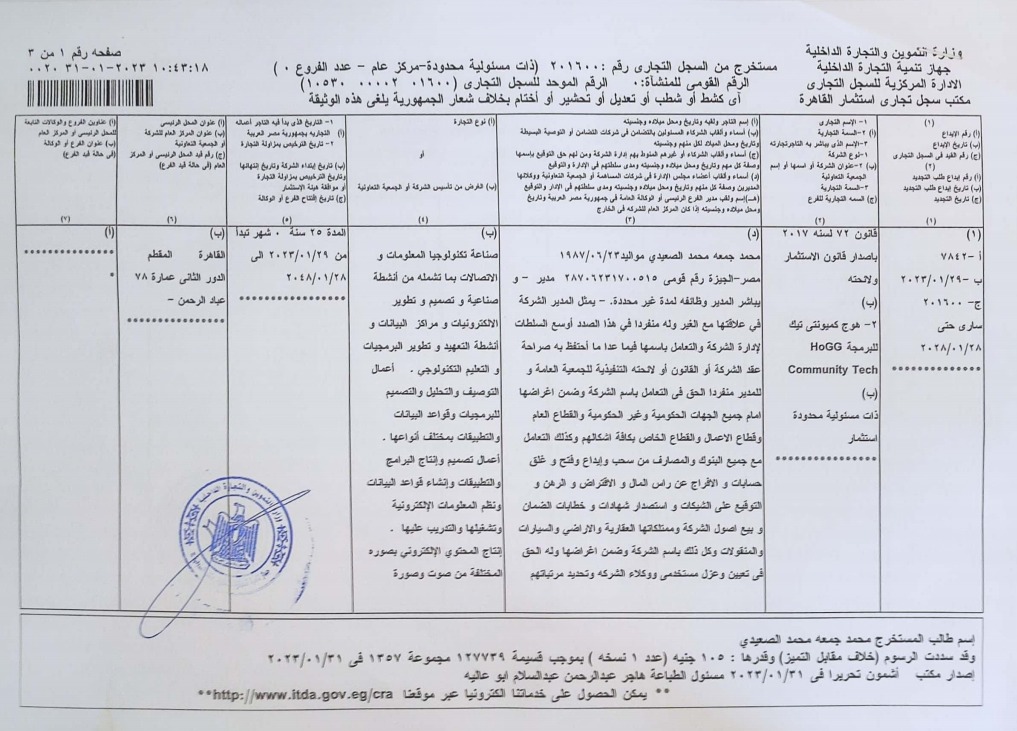 وزارة التموين والتجارة الداخلية
جهاز تنمية التجارة الداخلية
الادارة المركزية للسجل التجارى
مكتب سجل تجارى استثمار القاهرة
مستخرج من السجل التجارى رقم : ٢٠١٦٠٠ (ذات مسئولية محدودة-مركز عام - عدد الفروع ٠ )
الرقم القومى للمنشأة: ٠ الرقم الموحد للسجل التجارى (٠١٦٠٠ ٠٠٠٠٢ ١٠٥٣٠)
أى كشط أو شطب أو تعديل أو تحشير أو أختام بخلاف شعار الجمهورية يلغى هذه الوثيقة
صفحه رقم ١ من ٣
١٠:٤٣:١٨ ٢٠٢٣-٠١-٣١ ٠٠٢٠
(١)
أ) رقم الإيداع
ب) تاريخ الإيداع
ج) رقم القيد فى السجل التجارى
(٢)
أ) رقم إيداع طلب التجديد
ب) تاريخ إيداع طلب التجديد
ج) تاريخ التجديد
(١)
١- الإسم التجارى
أ) ٢-السمة التجارية
٣-الإسم الذى يباشر به التاجرتجارته
١-نوع الشركة
ب) ٢-عنوان الشركة أو اسمها أو إسم
الجمعية التعاونية
٣-السمة التجارية
ج) السمه التجارية للفرع
(٢)
أ) إسم التاجر ولقبه وتاريخ ومحل ميلاده وجنسيته
ب) أسماء وألقاب الشركاء المسئولين بالتضامن فى شركات التضامن أو التوصية البسيطة
وتاريخ ومحل الميلاد لكل منهم وجنسيته
ج) أسماء وألقاب الشركاء أو غيرهم المنوط بهم إدارة الشركة ومن لهم حق التوقيع باسمها
وصفة كل مهم وتاريخ ومحل ميلاده وجنسيته ومدى سلطتهم فى الإدارة والتوقيع
د) أسماء وألقاب أعضاء مجلس الإدارة فى شركات المساهمة أو الجمعية التعاونية ووكلائها
المديرين وصفة كل منهم وتاريخ ومحل ميلاده وجنسيته ومدى سلطتهم فى الادار والتوقيع
هـ) إسم ولقب مدير الفرع الرئيسى أو الوكالة العامة فى جمهورية مصر العربية وتاريخ
ومحل ميلاده وجنسيته إذا كان المركز العام للشركه فى الخارج
(٣)
أ) نوع التجارة
أو
ب) الغرض من تأسيس الشركة أو الجمعية التعاونية
(٤)
١- التاريخ الذى بدأ فيه التاجر أعماله
أ) التجاريه بجمهورية مصر العربية
٢- تاريخ التركيص بمزاولة التجارة
ب) تاريخ ابتداء الشركة وتاريخ إنتهائها
وتاريخ الترخيص بمزاولة التجارة
أو موافقة هيئة الإستثمار
ج) تاريخ إفتتاح الفرع أو الوكالة
(٥)
أ) عنوان المحل الرئيسى
ب) عنوان المركز العام للشركة
أو الجمعية التعاونية
ج) رقم قيد المحل الرئيسى أو المركز
العام (فى حالة قيد الفرع)
(٦)
أ) عناوين الفروع والوكالات التابعة
للمحل الرئيسى أو المركز العام
ب) عنوان الفرع أو الوكالة
(فى حالة قيد الفرع)
(٧)
(١)
أ -٧٨٤٢
ب -٢٠٢٣/٠١/٢٩
ج- ٢٠١٦٠٠
سارى حتى
٢٠٢٨/٠١/٢٨
**************
قانون ٧٢ لسنه ٢٠١٧
باصدار قانون الاستثمار
ولائحته
(ب)
٢- هوج كميونتى تيك
للبرمجة HoGG
Community Tech
(ب)
ذات مسئولية محدودة
استثمار
***************
(د)
محمد جمعه محمد الصعيدي مواليد١٩٨٧/٠٦/٢٣
مصر-الجيزة رقم قومى ٢٨٧٠٦٢٣١٧٠٠٥١٥ مدير - و
يباشر المدير وظائفه لمدة غير محددة. - يمثل المدير الشركة
في علاقتها مع الغير وله منفردا في هذا الصدد أوسع السلطات
لإدارة الشركة والتعامل باسمها فيما عدا ما أحتفظ به صراحة
عقد الشركة أو القانون أو لائحته التنفيذية للجمعية العامة و
للمدير منفردا الحق فى التعامل باسم الشركة وضمن اغراضها
امام جميع الجهات الحكومية وغير الحكومية والقطاع العام
وقطاع الاعمال والقطاع الخاص بكافة اشكالهم وكذلك التعامل
مع جميع البنوك والمصارف من سحب وإيداع وفتح و غلق
حسابات و الافراج عن راس المال و الاقتراض و الرهن و
التوقيع على الشيكات و استصدار شهادات و خطابات الضمان
و بيع اصول الشركة وممتلكاتها العقارية والاراضي والسيارات
والمنقولات وكل ذلك باسم الشركة وضمن اغراضها وله الحق
فى تعيين وعزل مستخدمى ووكلاء الشركه وتحديد مرتباتهم
(ب)
صناعة تكنولوجيا المعلومات و
الاتصالات بما تشمله من أنشطة
صناعية و تصميم و تطوير
الالكترونيات و مراكز البيانات و
أنشطة التعهيد و تطوير البرمجيات
و التعليم التكنولوجي . أعمال
التوصيف والتحليل والتصميم
للبرمجيات وقواعد البيانات
والتطبيقات بمختلف أنواعها .
أعمال تصميم وإنتاج البرامج
والتطبيقات وإنشاء قواعد البيانات
ونظم المعلومات الإلكترونية
وتشغيلها والتدريب عليها .
إنتاج المحتوي الإلكتروني بصوره
المختلفة من صوت وصورة
المدة ٢٥ سنة ٠ شهر تبدأ
من ٢٠٢٣/٠١/٢٩ الى
٢٠٤٨/٠١/٢٨
****************
(ب)
القاهرة المقطم
الدور الثانى عمارة ٧٨
عباد الرحمن -
***************
(أ)
**************
*
إسم طالب المستخرج محمد جمعه محمد الصعيدي
وقد سددت الرسوم (خلاف مقابل التميز) وقدرها : ١٠٥ جنيه (عدد ١ نسخه ) بموجب قسيمة ١٢٧٧٣٩ مجموعة ١٣٥٧ فى ٢٠٢٣/٠١/٣١
إصدار مكتب أشمون تحريرا فى ٢٠٢٣/٠١/٣١ مسئول الطباعة هاجر عبدالرحمن عبدالسلام ابو عاليه
** يمكن الحصول على خدماتنا الكترونيا عبر موقعنا http://www.itda.gov.eg/cra**